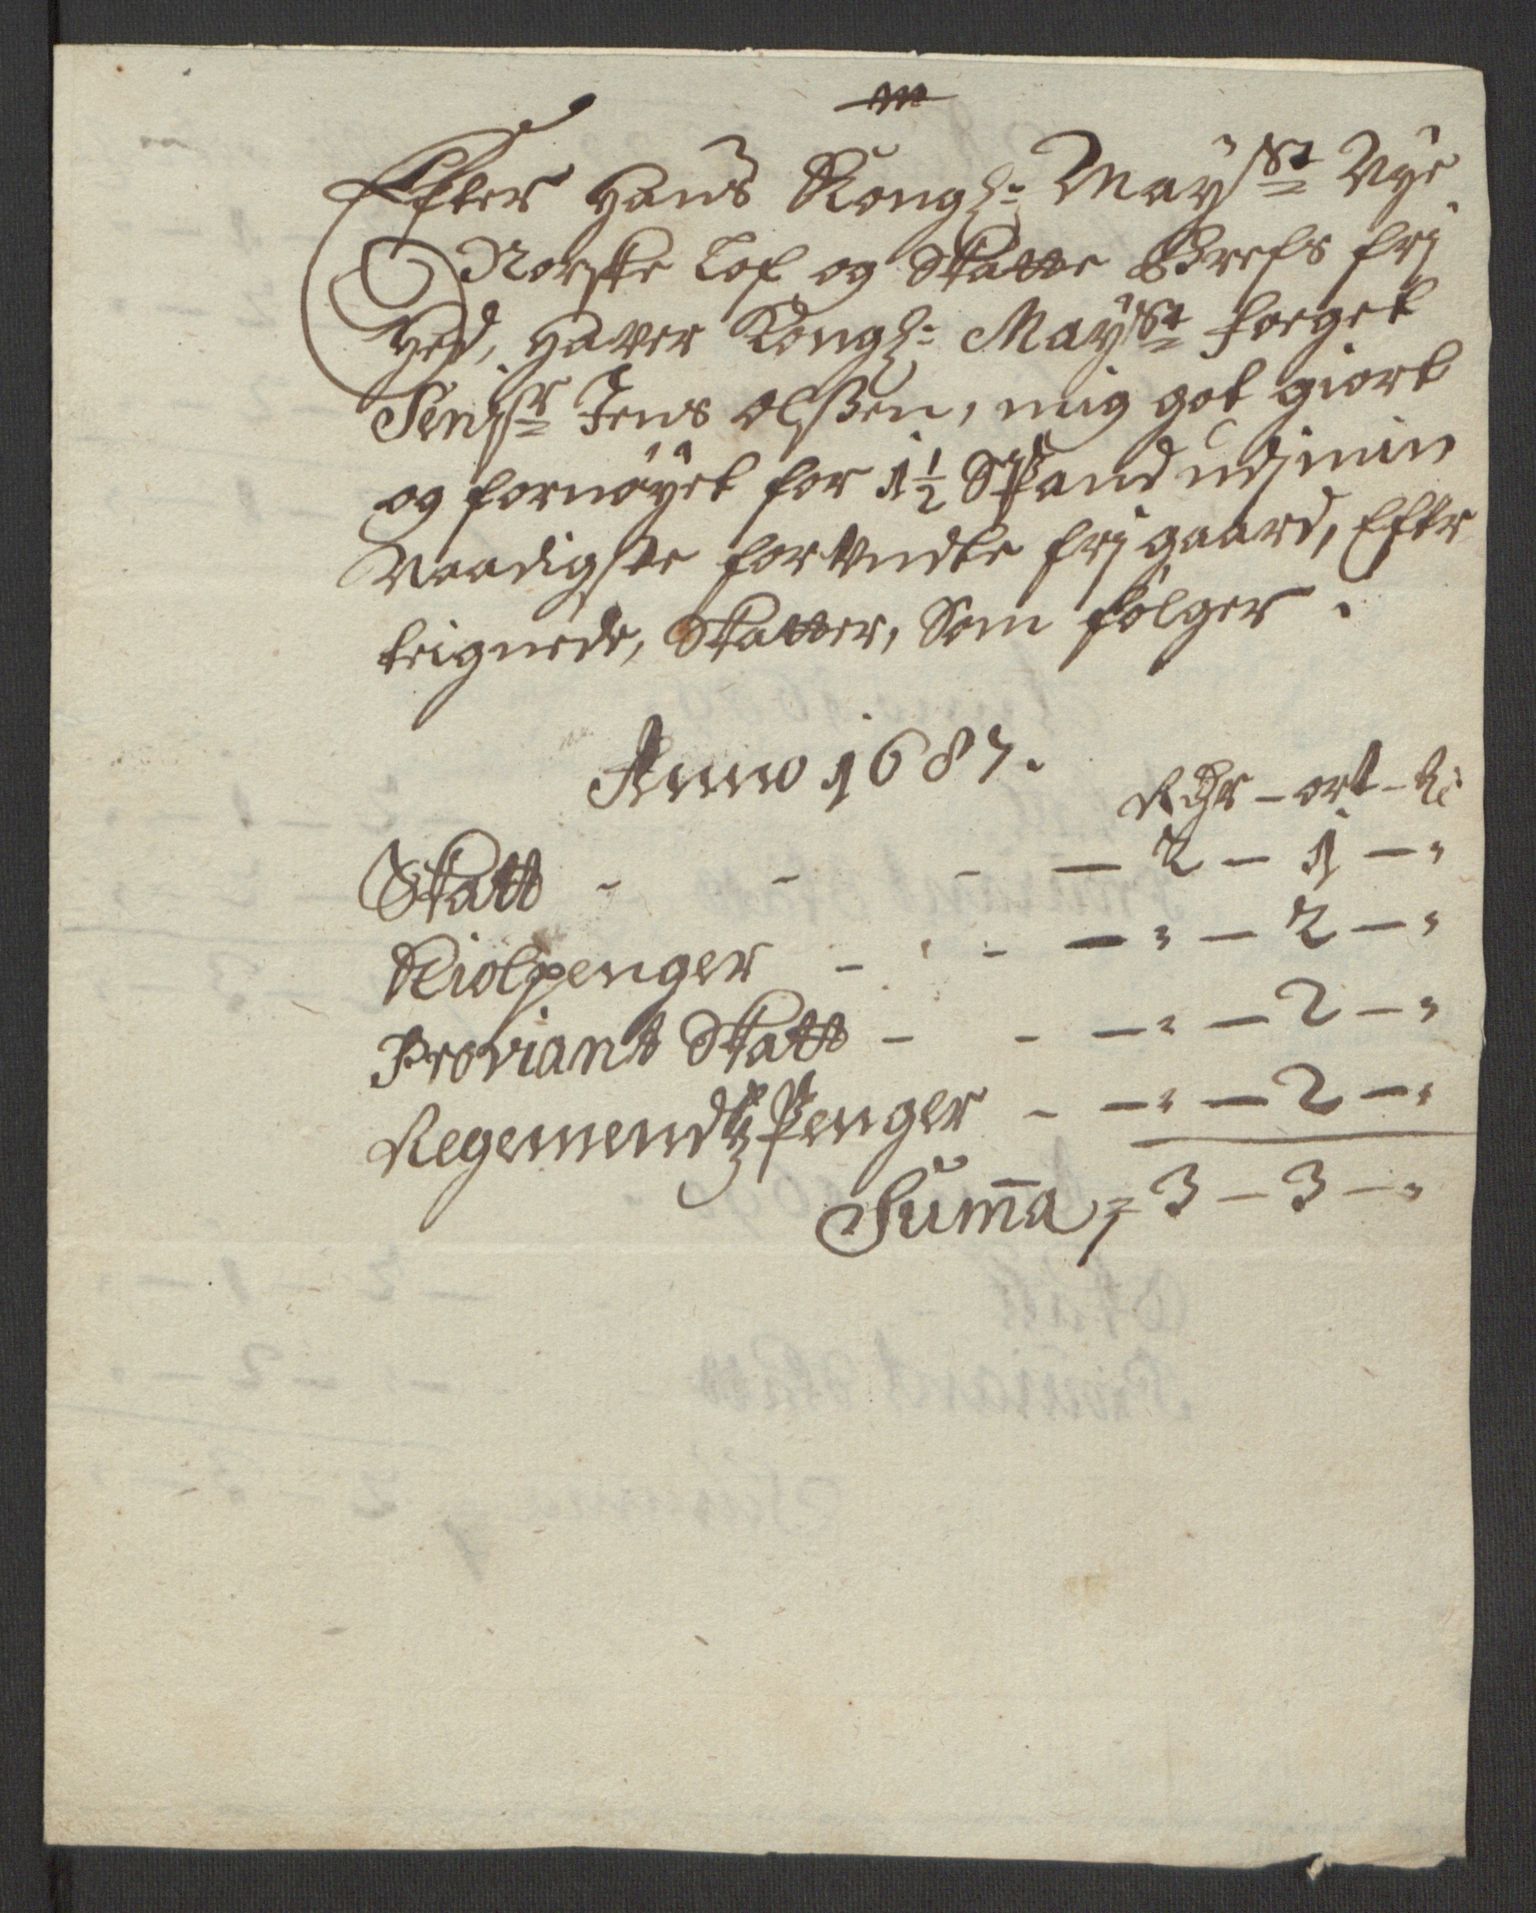 Efter Hans Kongl: Mayst: Nye
Norske Lof og Skatte Brefs frj
Hed, Haver Kongl: Mayst: Foeget
Senjsr Jens Olssen, mig got giort
og fornøyet for 1½ Spand udj min
Naadigste forUndte frjgaard, Efter
teignede, Skatter, Som følger.
Anno 1687.
Rdr – ort – s:
Skatt - - - — 2 — 1 — "
Kiolpenger - - - — " — 2 — "
Proviant Skatt - - — " — 2 — "
Regemendtz Penger - — " — 2 — "
Sum̄a, 3 — 3 — "